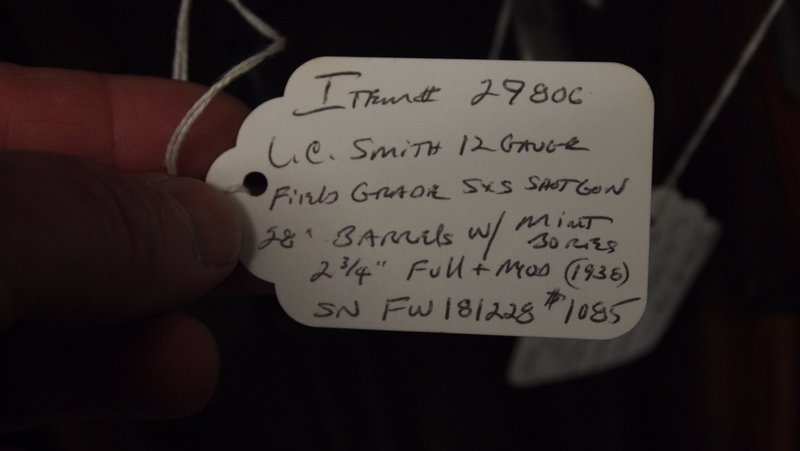 Item# 29806
L.C. Smith 12 Gauge
Field Grade SxS Shotgun
28" Barrels w/ Mint Bores
2 3/4" Full + Mod (1938)
SN FW181228 $1085